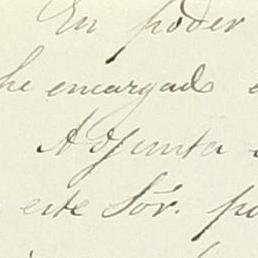 En poder
he encargado
Adjunta
este Sōr. po